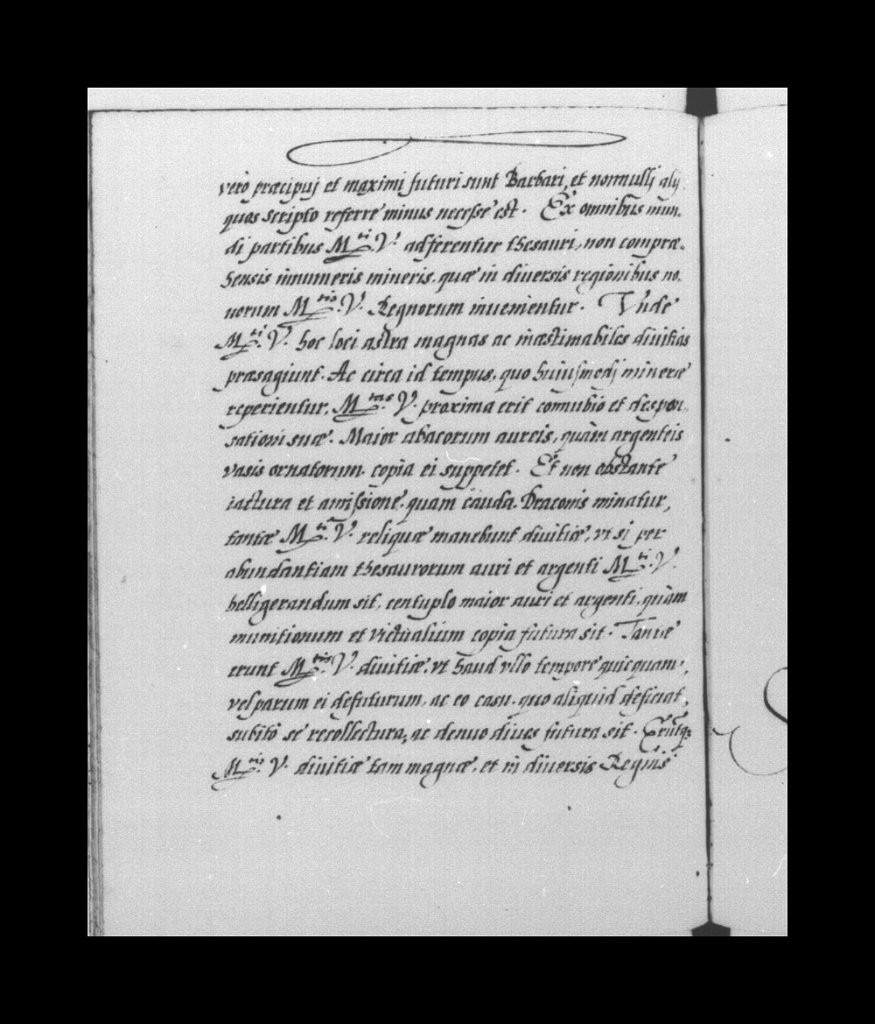 vero præcipuj et maximi futuri sunt Barbari, et nonnullj alij
quos scripto referre minus necesse est. Ex omnibus mun-
di partibus M.ti V. adferentur thesauri, non compræ-
hensis innumeris mineris, quæ in diversis regionibus no-
uorum M.tis V. Regnorum inuenientur. Vnde
M.ti V. hoc loci astra magnas ac inæstimabiles diuitias
præsagiunt. Ac circa id tempus, quo huiusmodj mineræ
reperientur, M.tas V. proxima erit connubio et despon-
sationi suæ. Maior abacorum aureis, quàm argenteis
vasis ornatorum copia ei suppetet. Et non obstante
iactura et amissione quam cauda Draconis minatur,
tantæ M.ti V. reliquæ manebunt diuitiæ, vt si per
abundantiam thesaurorum auri et argenti M.ti V.
belligerandum sit, centuplo maior auri et argenti, quàm
munitionum et victualium copia futura sit. Tantæ
erunt M.tis V. diuitiæ, vt haud vllo tempore quicquam,
vel parum ei defuturum, ac eo casu, quo aliquid deficiat,
subitò se recollectura, ac denuo diues futura sit. Erũtq;
M.tis V. diuitiæ tam magnæ, et in diuersis Regnis